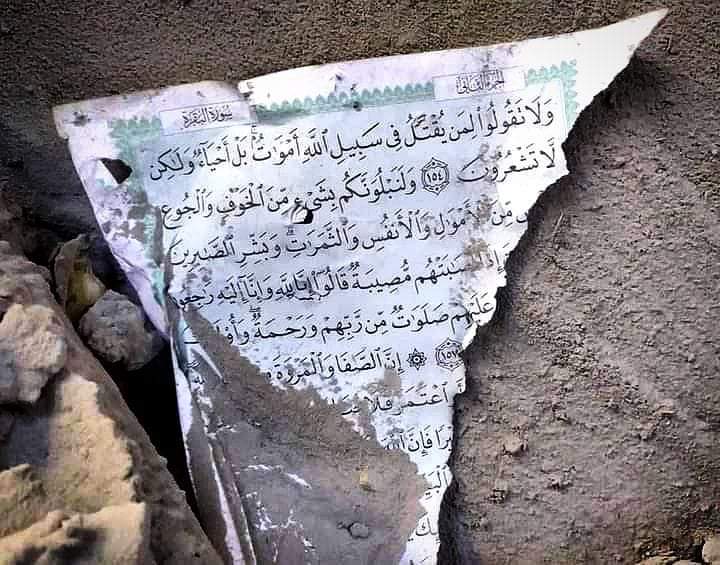 الجزء الثاني
سورة البقرة
وَلَا تَقُولُوا۟ لِمَن يُقْتَلُ فِى سَبِيلِ ٱللَّهِ أَمْوَٰتٌۢ ۚ بَلْ أَحْيَآءٌ وَلَٰكِن
لَّا تَشْعُرُونَ ١٥٤ وَلَنَبْلُوَنَّكُم بِشَىْءٍ مِّنَ ٱلْخَوْفِ وَٱلْجُوعِ
مِّنَ ٱلْأَمْوَٰلِ وَٱلْأَنفُسِ وَٱلثَّمَرَٰتِ ۗ وَبَشِّرِ ٱلصَّٰبِرِينَ
مُّصِيبَةٌ قَالُوٓا۟ إِنَّا لِلَّهِ وَإِنَّآ إِلَيْهِ رَٰجِعُو
عَلَيْهِمْ صَلَوَٰتٌ مِّن رَّبِّهِمْ وَرَحْمَةٌ ۖ
١٥٧ ۞ إِنَّ ٱلصَّفَا وَٱلْمَرْوَةَ
ٱعْتَمَرَ فَلَا
فَإِنَّ ٱللَّهَ